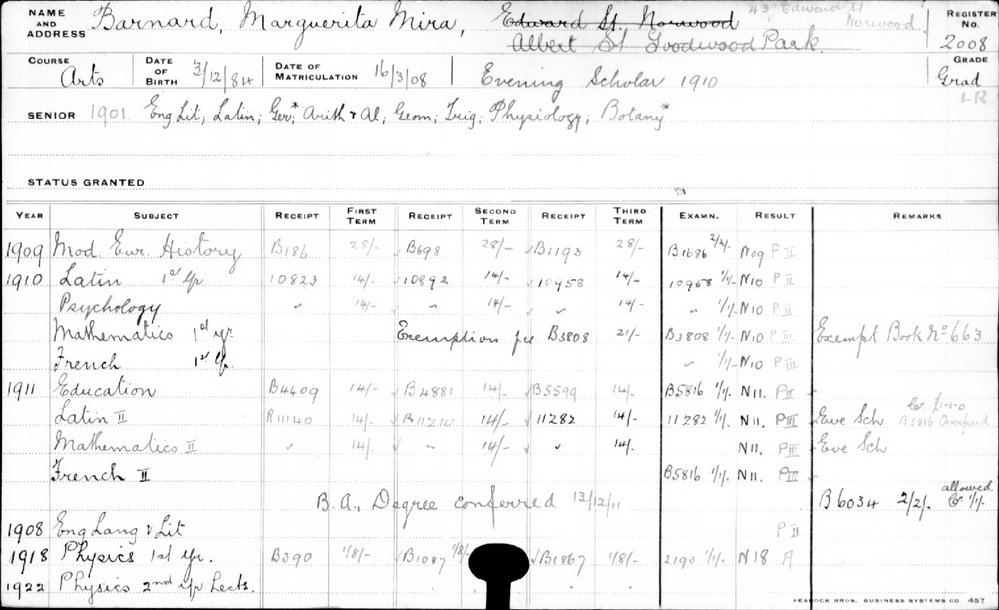 NAME AND ADDRESS Barnard, Marguerita Mira, Edward St. Norwood 43 Edward St Norwood REGISTER No. 2008
Albert St Goodwood Park
COURSE Arts DATE OF BIRTH 3/12/84 DATE OF MATRICULATION 16/3/08 Evening Scholar 1910 GRADE Grad
LR
SENIOR 1901 Eng Lit; Latin; Ger;* Arith & Al; Geom; Trig; Physiology; Botany*
STATUS GRANTED
YEAR SUBJECT RECEIPT FIRST TERM RECEIPT SECOND TERM RECEIPT THIRD TERM EXAMN. RESULT REMARKS
1909 Mod. Eur. History B186 28/- B698 28/- B1193 28/- B1686 2/2/- N09 P II
1910 Latin 1st yr 10823 14/- 10892 14/- 10958 14/- 10958 1/1/- N10 P II
Psychology " 14/- " 14/- " 14/- " 1/1/- N10 P II
Mathematics 1st yr. Exemption fee B3808 21/- B3808 1/1/- N10 P III Exempt Book No 663
French 1st yr. " 1/1/- N10 P III
1911 Education B4409 14/- B4881 14/- B5599 14/- B5816 1/1/- N11. P II
Latin II R11140 14/- R11210 14/- 11282 14/- 11282 1/1/- N11. P III Eve Sch Cr £1-1-0 B5816 Overpaid
Mathematics II " 14/- " 14/- " 14/- N11. P III Eve Sch
French II B5816 1/1/- N11. P III
B.A. Degree conferred 13/12/11 B6034 2/2/- allowed Cr 1/1/-
1908 Eng Lang & Lit P II
1918 Physics 1st yr. B390 1/8/- B1087 1/8/- B1867 1/8/- 2195 1/1/- N18 A
1922 Physics 2nd yr Lects.
PEACOCK BROS. BUSINESS SYSTEMS CO 457